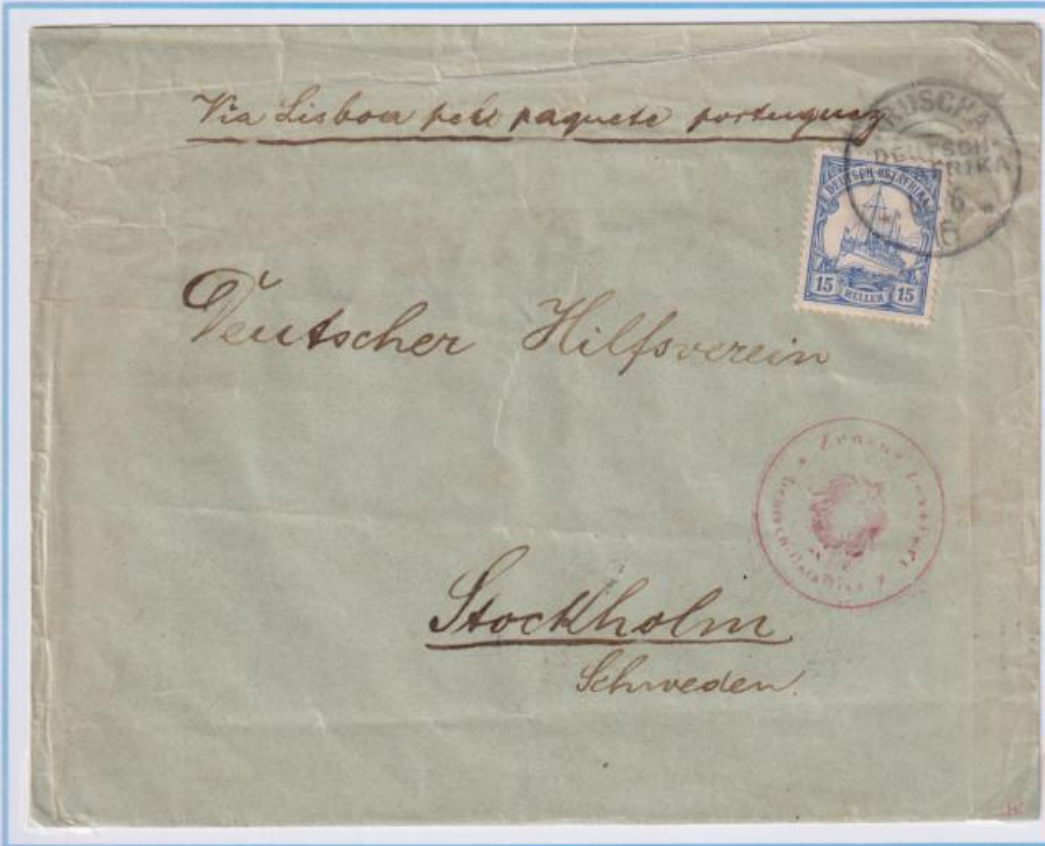 Via Lisboa pelo paquete portuguez
ARUSCHA
DEUTSCH-
AFRIKA
6
6
DEUTSCH-OSTAFRIKA
15 HELLER 15
Deutscher Hilfsverein
Zensur
Deutsch-Ostafrika
Stockholm
Schweden.